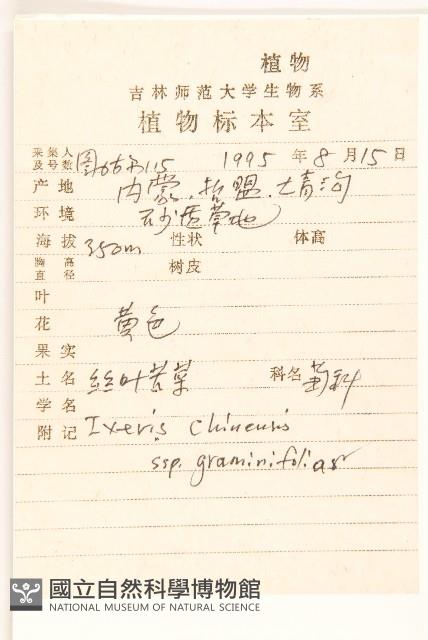 植物
吉林师范大学生物系
植物标本室
采集人及号数 115 1995 年 8 月 15 日
产地 内蒙.哲盟.大青沟
环境 砂质草地
海拔 350m 性状 体高
胸高直径 树皮
叶
花 黄色
果实
土名 丝叶苦菜 科名 菊科
学名
附记 Ixeris chinensis
ssp. graminifolia
國立自然科學博物館
NATIONAL MUSEUM OF NATURAL SCIENCE